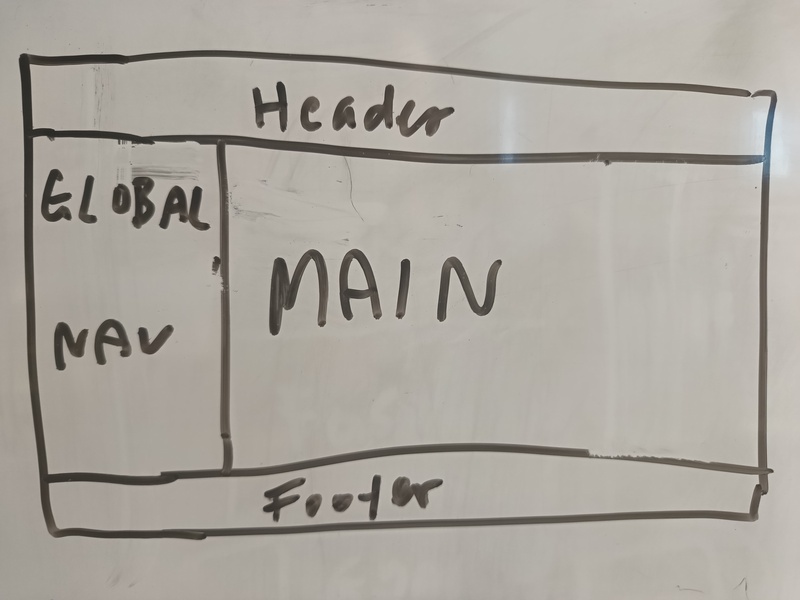 Header
GLOBAL
NAV
MAIN
Footer